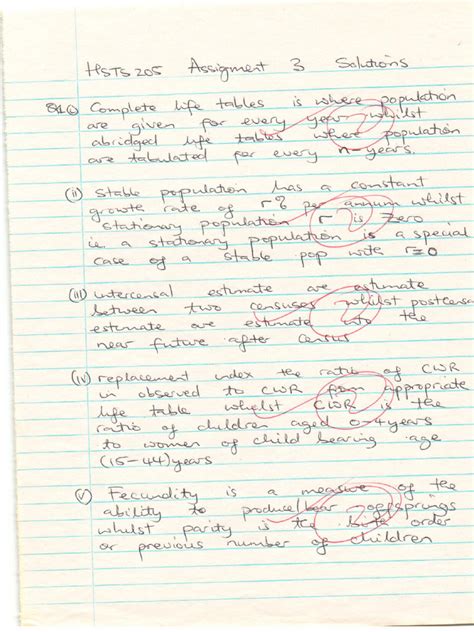 HSTS 205 Assignment 3 Solutions
Q1 (i) Complete life tables is where population
are given for every year whilst
abridged life tables where population
are tabulated for every n-years.
(ii) Stable population has a constant
growth rate of r% per annum whilst
stationary population r is zero
i.e a stationary population is a special
case of a stable pop with r=0
(iii) intercensal estimate are estimate
between two censuses whilst postcensal
estimate are estimate into the
near future after census
(iv) replacement index the ratio of CWR
in observed to CWR from appropriate
life table whilst CWR is the
ratio of children aged 0-4 years
to women of child bearing age
(15-44) years
(v) Fecundity is a measure of the
ability to produce/bear offsprings
whilst parity is the birth order
or previous number of children